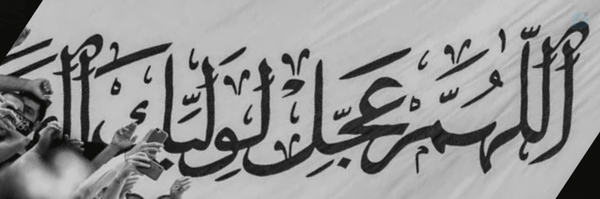 اللّٰهُمَّ عَجِّل لِوَلِيِّكَ ال